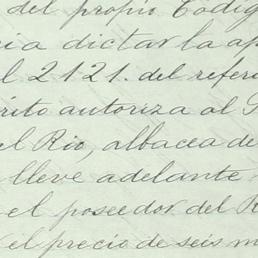 del propio Códig
ia dictar la ap
l 2121. del refer
rito autoriza al G
el Rio, albacea de
lleve adelante
el poseedor del R
el precio de seis m